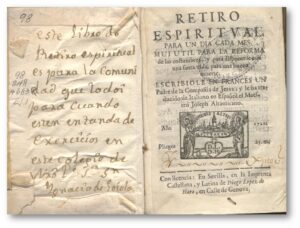 98
este libro de
Retiro espiritual
es para la comuni
dad que todos
para cuando
esten en tanda de
Exercicios en
este colegio de
Ignacio de
RETIRO
ESPIRITUAL,
PARA UN DIA CADA MES.
MUI UTIL PARA LA REFORMA
de las costumbres, y para disponerse con
una santa vida, para una buena
muerte.
ESCRIBIOLE EN FRANCES UN
Padre de la Compañia de Jesus; y le ha tra-
ducido de Italiano en Español
Joseph Altamirano.
Año
Pliegos
Con licencia: En Sevilla, en la Imprenta
Castellana, y Latina de Diego Lopez de
Haro, en Calle de Genova.